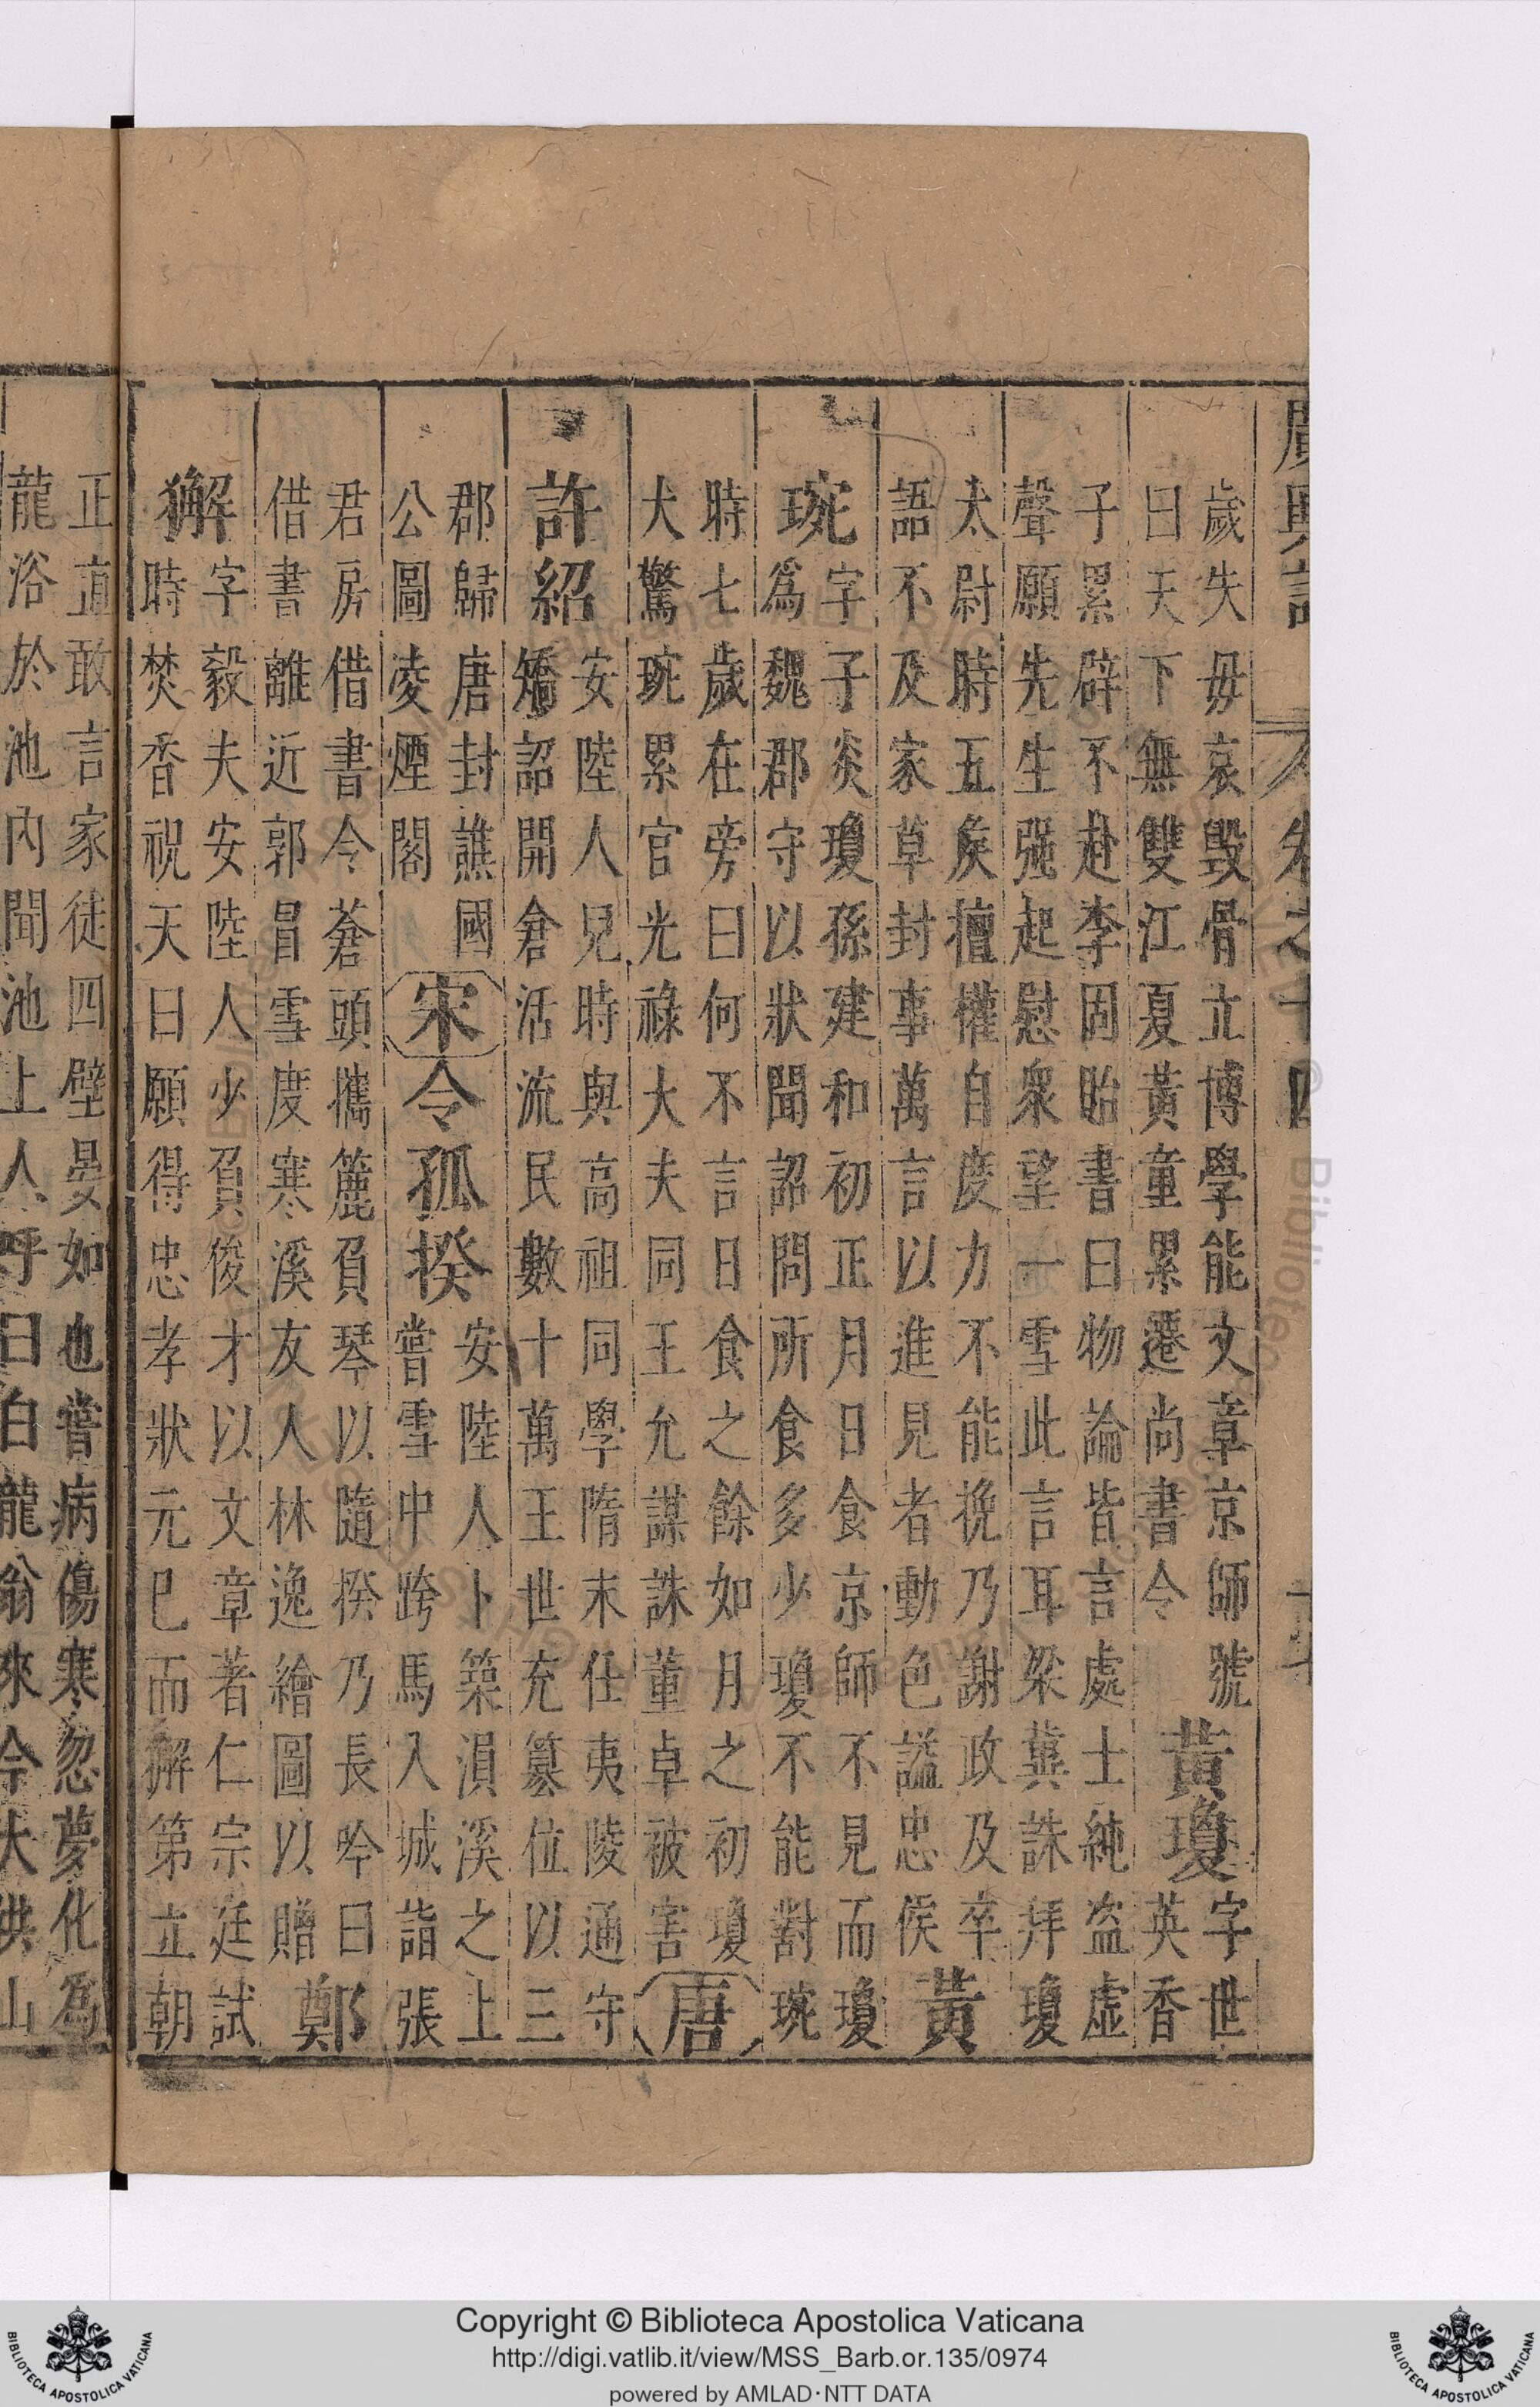 廣輿記 卷之十四
歲失毋哀毀骨立博學能文章京師號
曰天下無雙江夏黃童累遷尚書令
黃瓊
字世
英香
子累辟不赴李固貽書曰物論皆言處士純盜虛
聲願先生强起慰衆望一雪此言耳梁冀誅拜瓊
太尉時五矦擅權自度力不能挽乃謝政及卒
語不及家草封事萬言以進見者動色謚忠侯
黃
琬
字子炎瓊孫建和初正月日食京師不見而瓊
爲魏郡守以狀聞詔問所食多少瓊不能對琬
時七歲在旁曰何不言日食之餘如月之初瓊
大驚琬累官光祿大夫同王允謀誅董卓被害
唐
許紹
安陸人兒時與高祖同學隋末仕夷陵通守
矯詔開倉活流民數十萬王世充簒位以三
郡歸唐封譙國
公圖凌煙閣
宋
令孤揆
安陸人卜築溳溪之上
嘗雪中跨馬入城詣張
君房借書令蒼頭攜簏負琴以隨揆乃長吟曰
借書離近郭冒雪度寒溪友人林逸繪圖以贈
鄭
獬
字毅夫安陸人少負俊才以文章著仁宗廷試
時焚香祝天曰願得忠孝狀元巳而獬第立朝
正直敢言家徒四壁晏如也嘗病傷寒忽夢化爲
龍浴於池內聞池上人呼曰白龍翁來今大洪山
Copyright © Biblioteca Apostolica Vaticana
http://digi.vatlib.it/view/MSS_Barb.or.135/0974
powered by AMLAD·NTT DATA
BIBLIOTECA APOSTOLICA VATICANA
BIBLIOTECA APOSTOLICA VATICANA